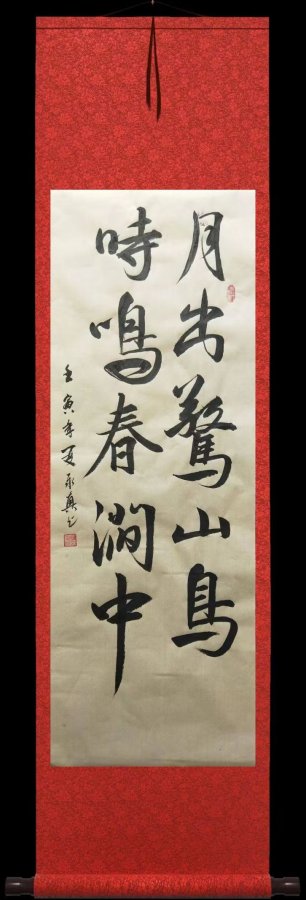 月出驚山鳥
時鳴春澗中
壬寅年夏承真書